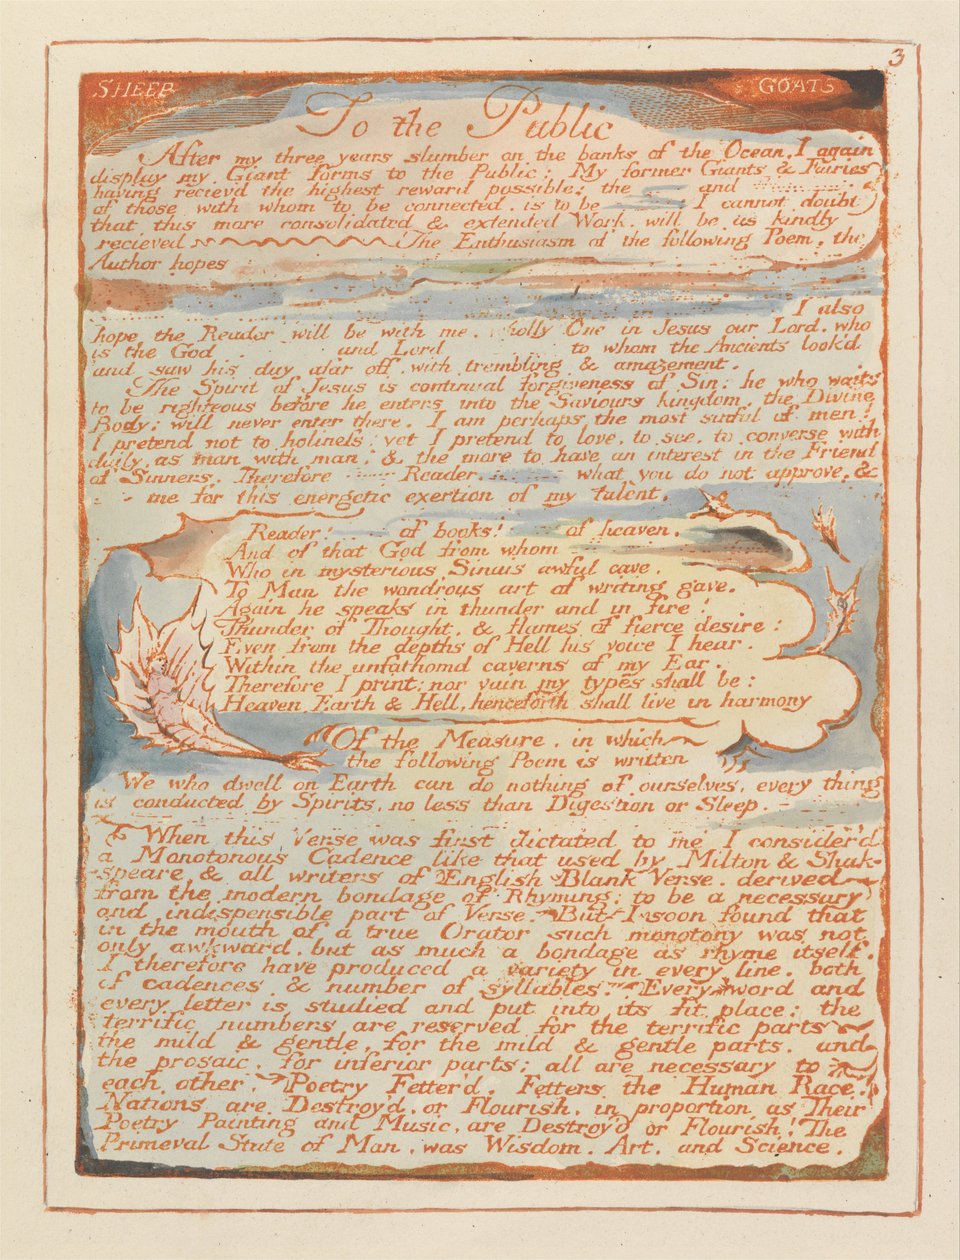 3
SHEEP
GOATS
To the Public
After my three years slumber on the banks of the Ocean, I again
display my Giant forms to the Public: My former Giants & Fairies
having reciev'd the highest reward possible: the and
of those with whom to be connected, is to be I cannot doubt
that this more consolidated & extended Work, will be as kindly
recieved The Enthusiasm of the following Poem, the
Author hopes
I also
hope the Reader will be with me, wholly One in Jesus our Lord, who
is the God and Lord to whom the Ancients look'd
and saw his day afar off, with trembling & amazement.
The Spirit of Jesus is continual forgiveness of Sin: he who waits
to be righteous before he enters into the Saviours kingdom, the Divine
Body; will never enter there. I am perhaps the most sinful of men!
I pretend not to holiness: yet I pretend to love, to see, to converse with
daily, as man with man, & the more to have an interest in the Friend
of Sinners. Therefore Reader, what you do not approve, &
me for this energetic exertion of my talent.
Reader! of books! of heaven,
And of that God from whom
Who in mysterious Sinais awful cave,
To Man the wond'rous art of writing gave,
Again he speaks in thunder and in fire!
Thunder of Thought, & flames of fierce desire:
Even from the depths of Hell his voice I hear,
Within the unfathomd caverns of my Ear.
Therefore I print; nor vain my types shall be:
Heaven, Earth & Hell, henceforth shall live in harmony
Of the Measure, in which
the following Poem is written
We who dwell on Earth can do nothing of ourselves, every thing
is conducted by Spirits, no less than Digestion or Sleep.
When this Verse was first dictated to me I consider'd
a Monotonous Cadence like that used by Milton & Shak-
-speare & all writers of English Blank Verse, derived
from the modern bondage of Rhyming; to be a necessary
and indispensible part of Verse. But I soon found that
in the mouth of a true Orator such monotony was not
only awkward, but as much a bondage as rhyme itself.
I therefore have produced a variety in every line, both
of cadences & number of syllables. Every word and
every letter is studied and put into its fit place: the
terrific numbers are reserved for the terrific parts
the mild & gentle, for the mild & gentle parts, and
the prosaic, for inferior parts; all are necessary to
each other. Poetry Fetter'd, Fetters the Human Race!
Nations are Destroy'd, or Flourish, in proportion as Their
Poetry Painting and Music, are Destroy'd or Flourish! The
Primeval State of Man, was Wisdom, Art, and Science.